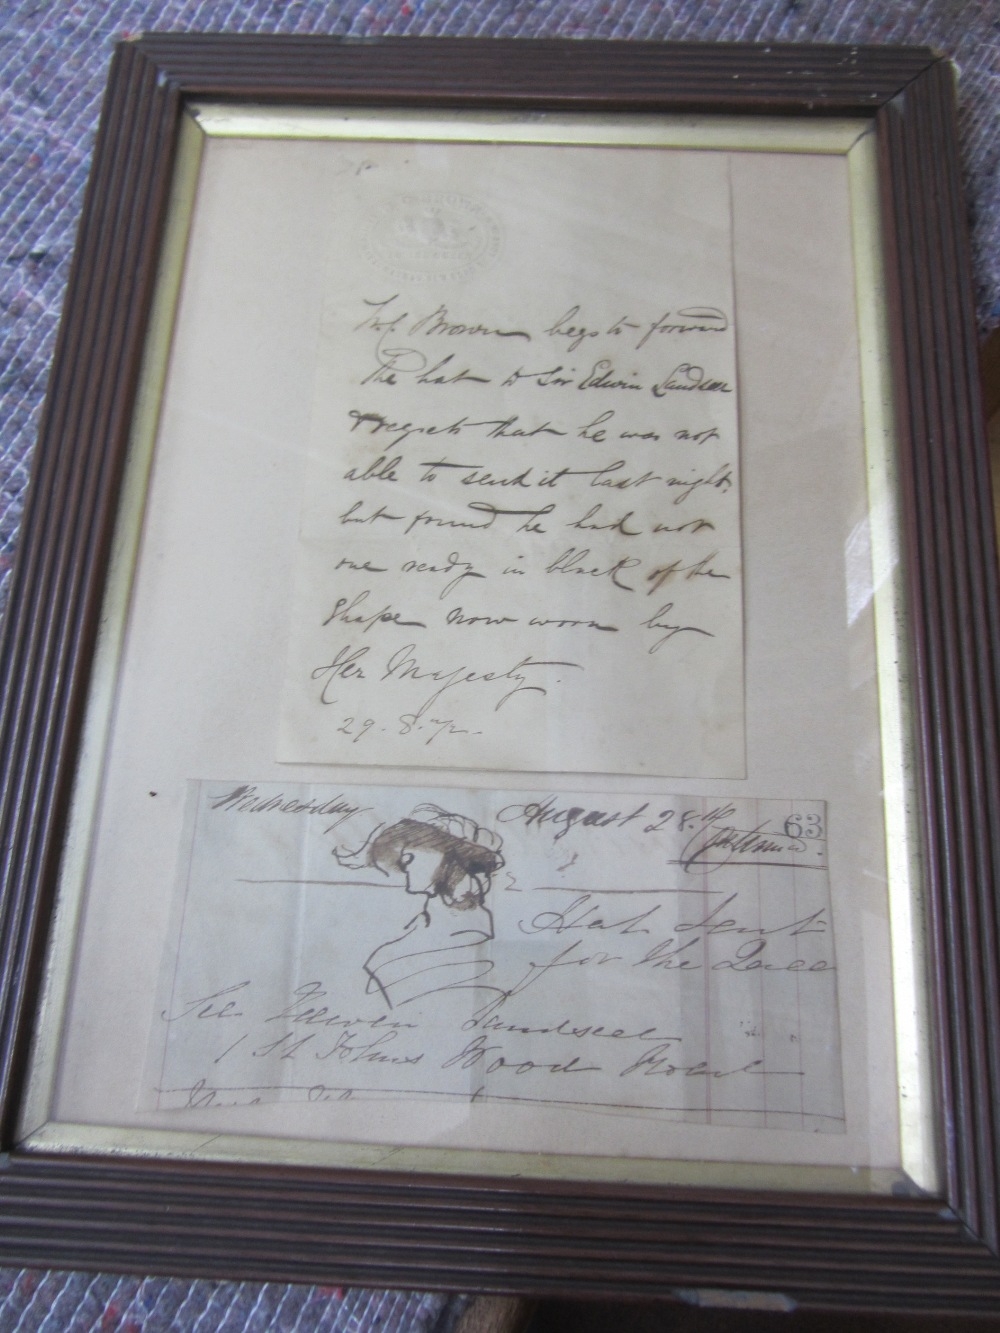 Mr Brown begs to forward
the hat to Sir Edwin Landseer
& regrets that he was not
able to send it last night,
but found he had not
one ready in black of the
shape now worn by
Her Majesty.
29.8.
Wednesday August 28th 63
Hat sent
for the Quee
Sir Edwin Landseer
1 St Johns Wood Road